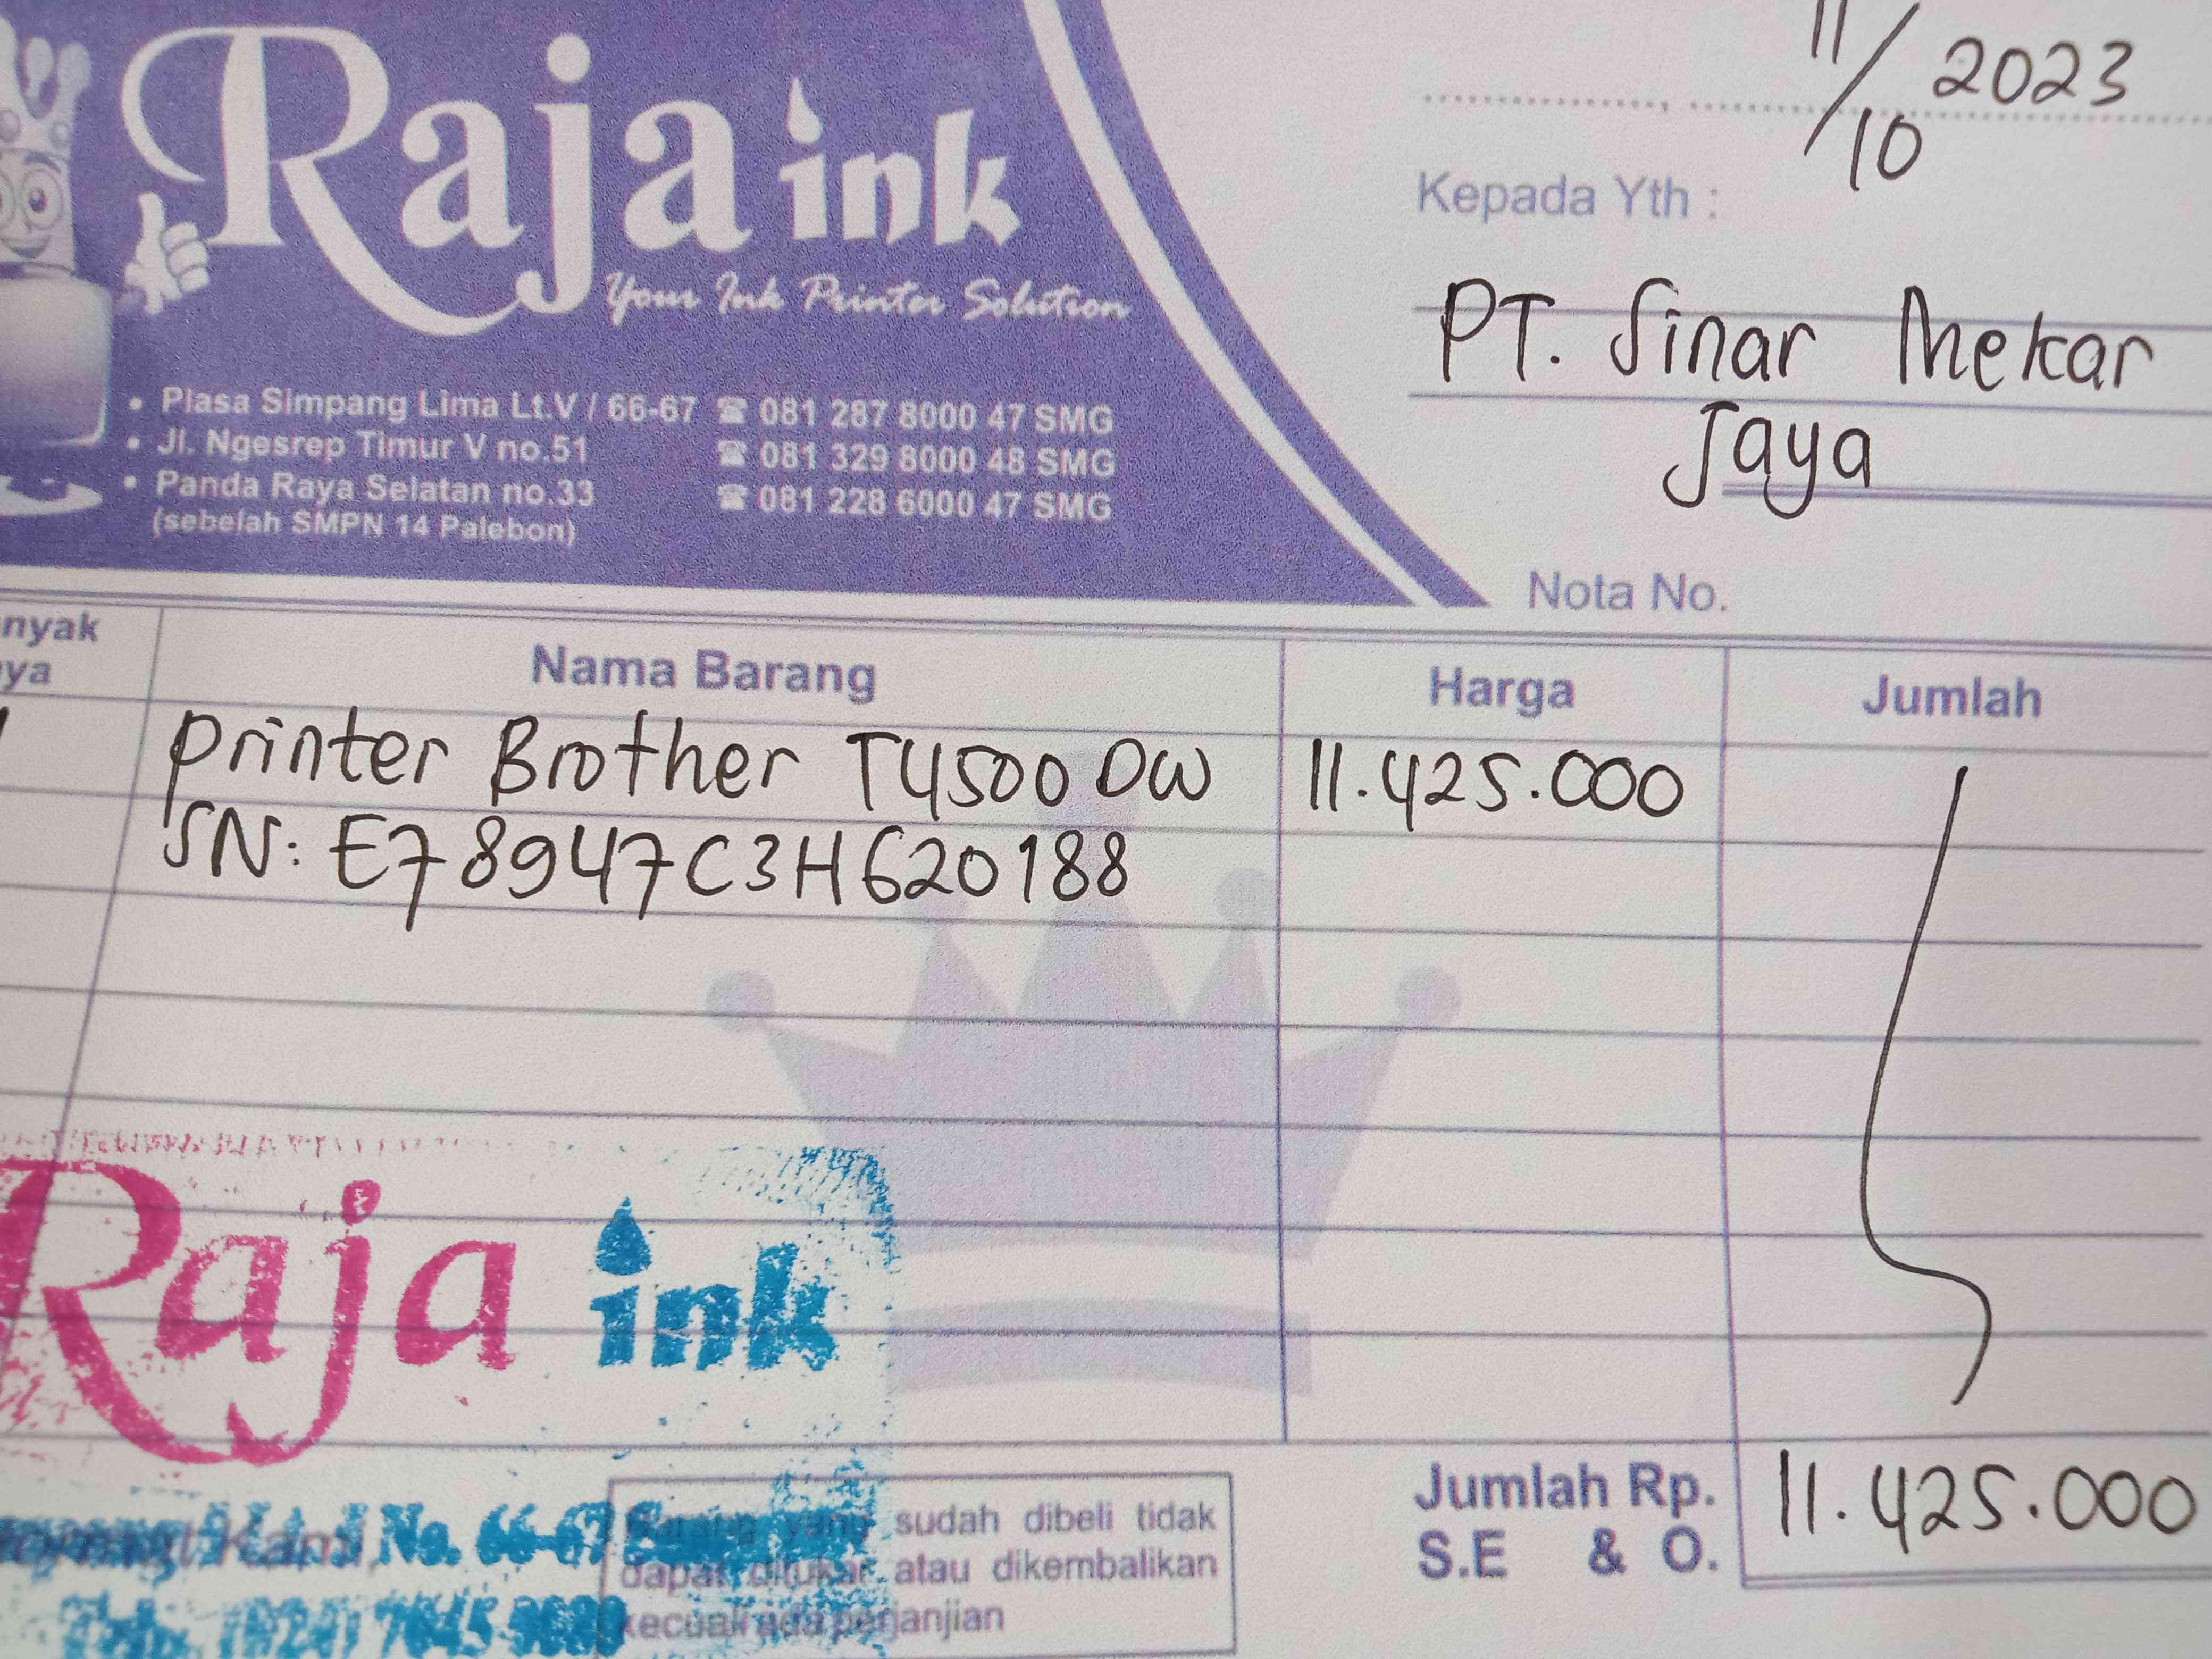 Raja ink
Your Ink Printer Solution
• Plasa Simpang Lima Lt.V / 66-67 ☎ 081 287 8000 47 SMG
• Jl. Ngesrep Timur V no.51 ☎ 081 329 8000 48 SMG
• Panda Raya Selatan no.33 ☎ 081 228 6000 47 SMG
(sebelah SMPN 14 Palebon)
11/10 2023
Kepada Yth :
PT. Sinar Mekar
Jaya
Nota No.
nyak
ya
Nama Barang Harga Jumlah
1 Printer Brother T4500 DW 11.425.000
SN: E78947C3H620188
Raja ink
No. 66-67
sudah dibeli tidak
dapat ditukar atau dikembalikan
kecuali ada perjanjian
Jumlah Rp. 11.425.000
S.E & O.